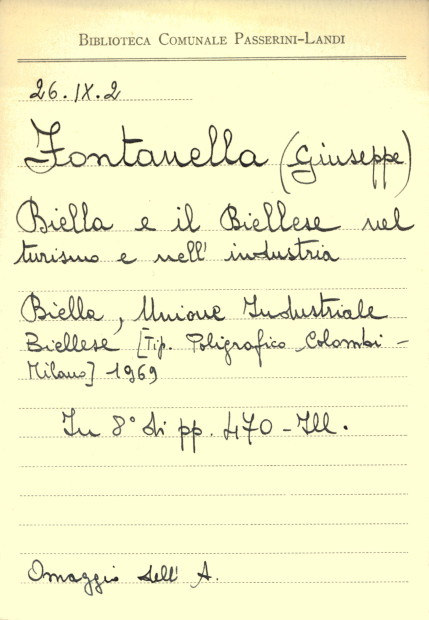 BIBLIOTECA COMUNALE PASSERINI-LANDI
26.IX.2
Fontanella (Giuseppe)
Biella e il Biellese nel
turismo e nell' industria
Biella, Unione Industriale
Biellese [Tip. Poligrafico Colombi -
Milano] 1969
In 8° di pp. 470 - Ill.
Omaggio dell' A.